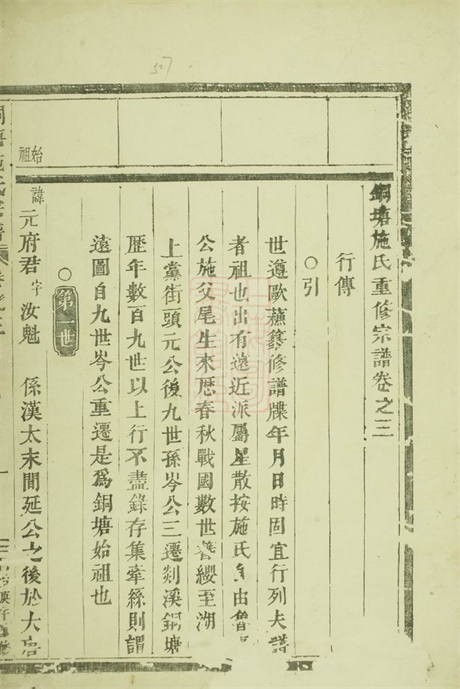 銅塘施氏重修宗譜卷之三
行傳
○引
世遵歐蘇纂修譜牒年月日時固宜行列夫譜
者祖也出有遠近派屬星散按施氏自由魯
公施父尾生來歷春秋戰國數世簪纓至湖
上黨街頭元公後九世孫岑公三遷剡溪銅塘
歷年數百九世以上行不盡錄存集牽絲則謂
遠圖自九世岑公重遷是爲銅塘始祖也
○第一世
始祖
諱元府君字汝魁 係漢太末間延公之後於大唐